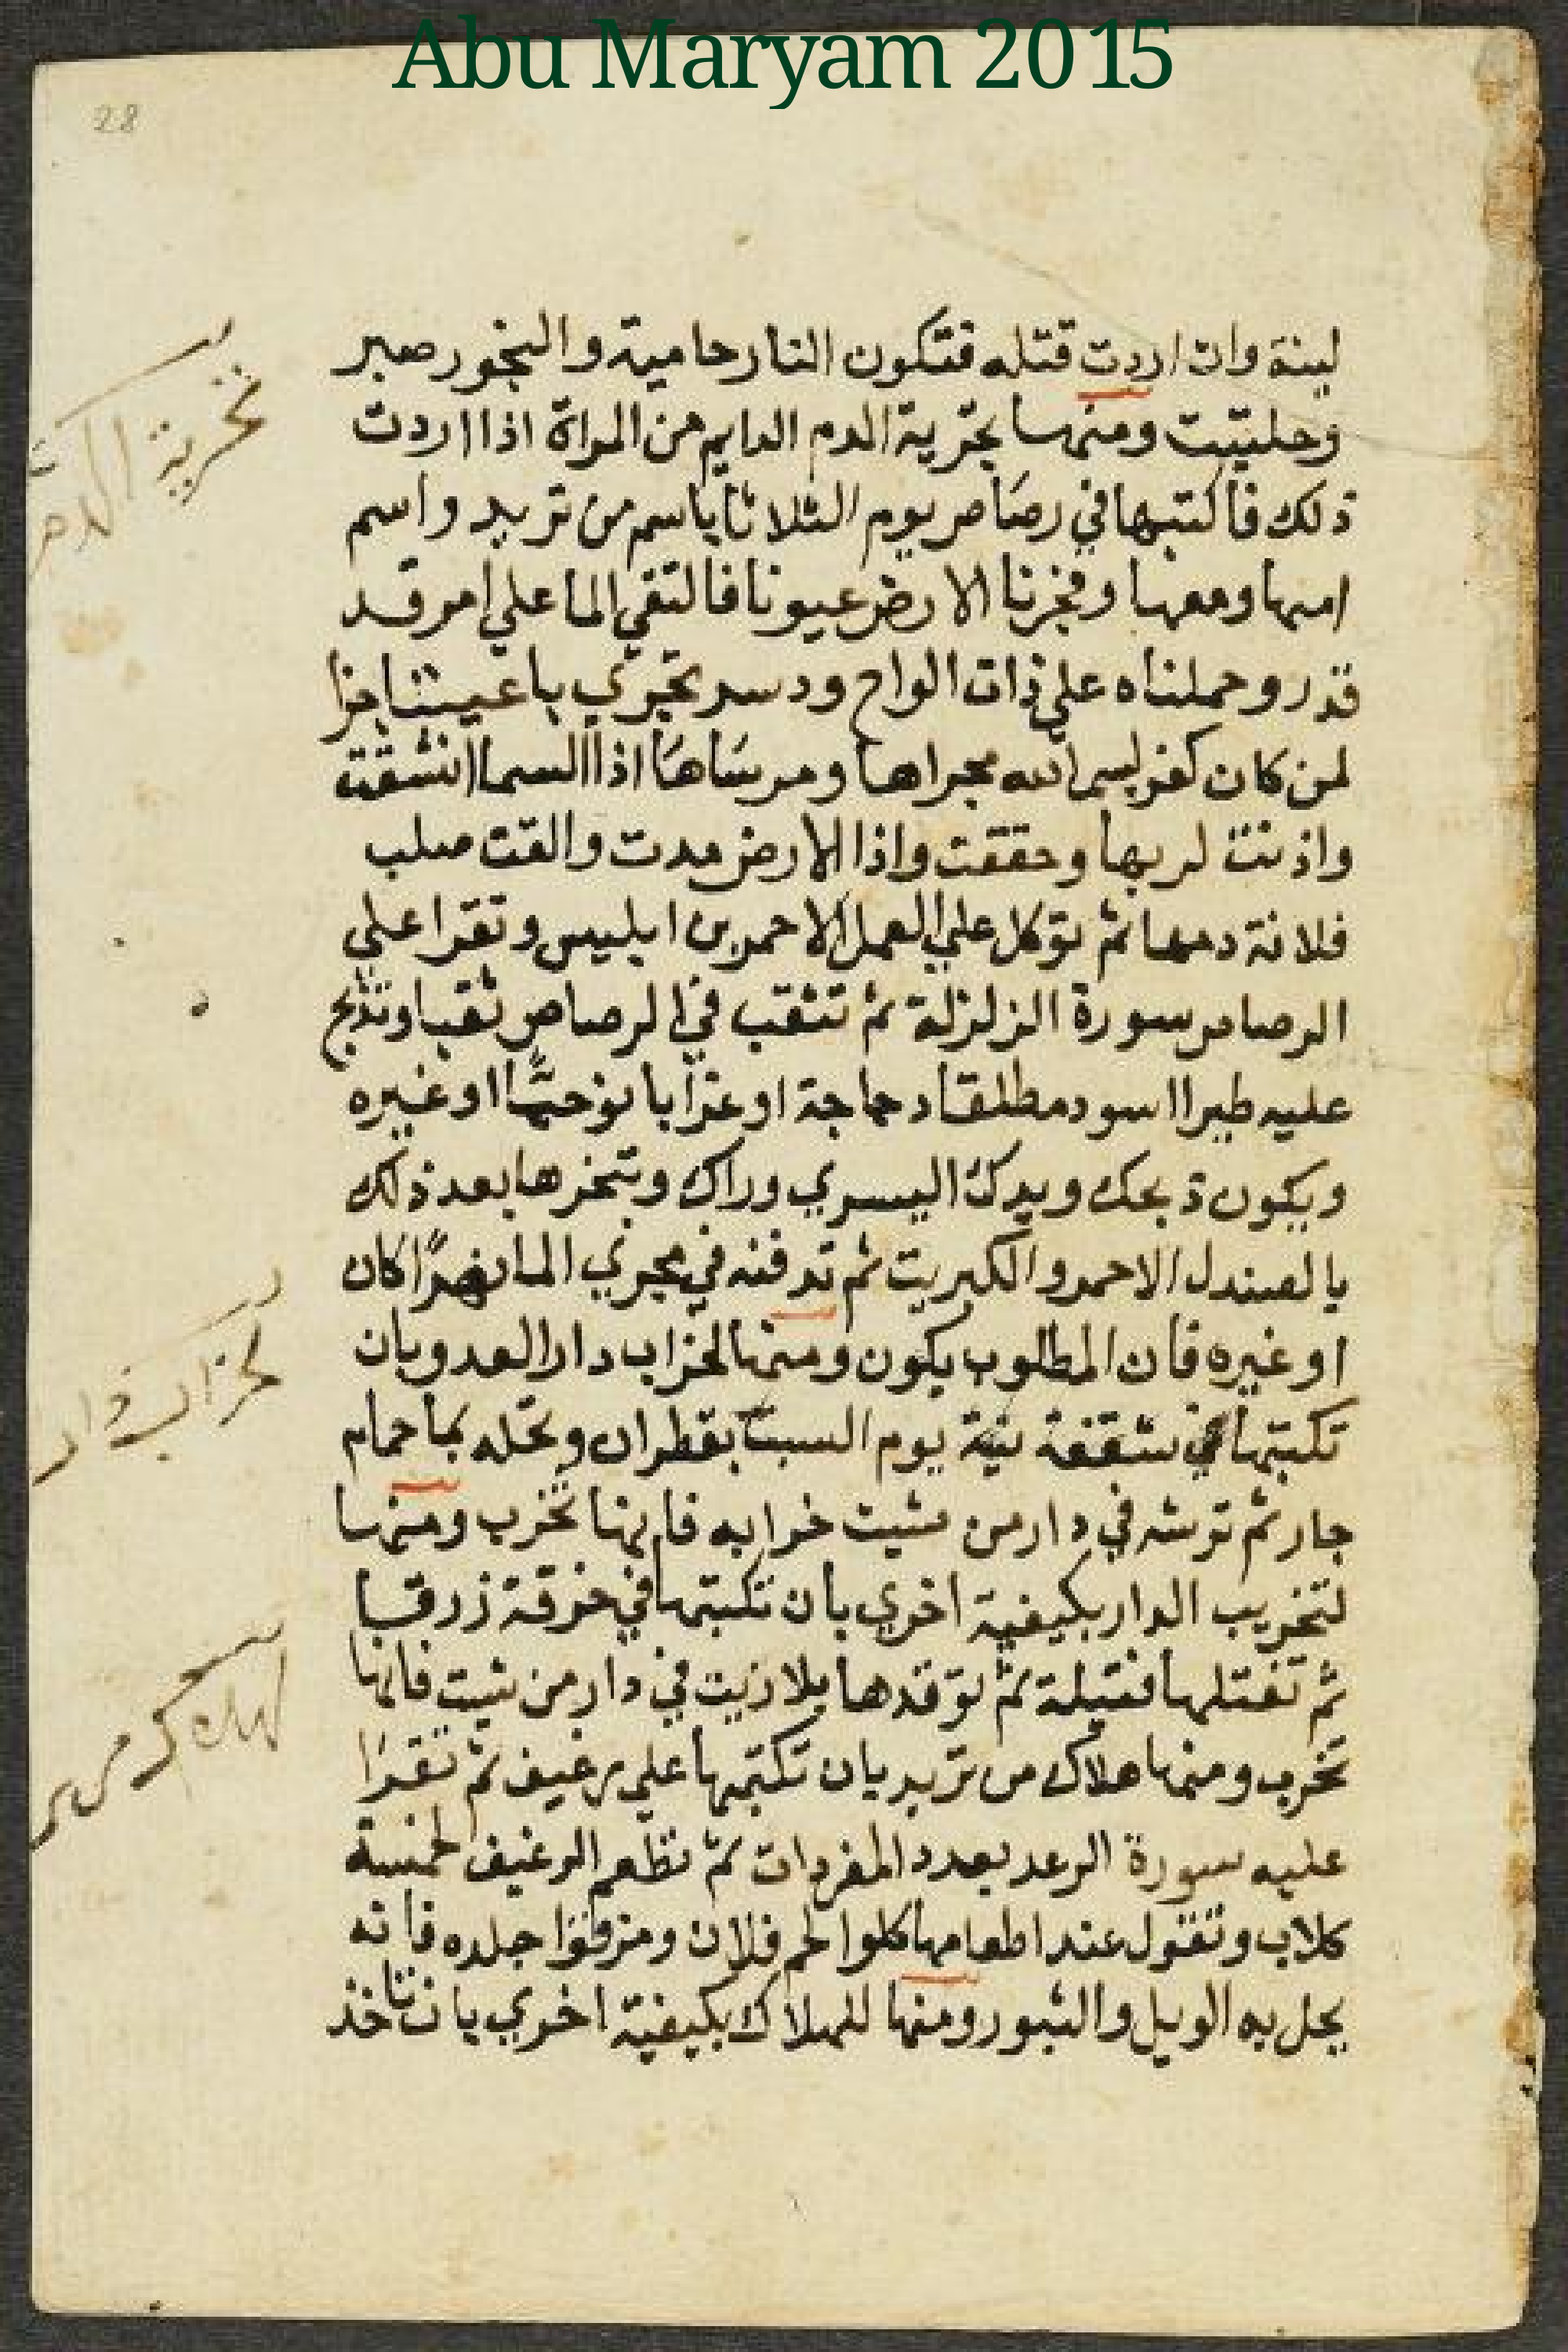 Abu Maryam 2015
28
لينة وان اردت قتله فتكون النار حامية والبخور صبر
وحلتيت ومنها بحرية الدم الدايم من المراة اذا اردت
ذلك فاكتبها في رصاص يوم الثلاثا باسم من تريد واسم
امها ومعها وفجرنا الارض عيونا فالتقي الما علي امر قد
قدر وحملناه علي ذات الواح ودسر تجري باعيننا جزا
لمن كان كفر بسم الله مجراها ومرساها اذا السما انشقت
واذنت لربها وحققت واذا الارض مدت والقت صلب
فلانة دمها ثم توكل علي العمل الاحمر بن ابليس وتقرا علي
الرصاص سورة الزلزلة ثم تثقب في الرصاص ثقبا وتذبح
عليه طيرا اسود مطلقا دجاجة او غرابا نوحيا او غيره
ويكون ذبحك ويدك اليسري وراك وتبخرها بعد ذلك
بالصندل الاحمر والكبريت ثم تدفنه في مجري الما نهرًا كان
او غيره فان المطلوب يكون ومنها لخراب دار العدو بان
تكتبها في شقفة نية يوم السبت بقطران وتحله بما حمام
جار ثم ترشه في دار من شيت خرابه فانها تخرب ومنها
لتخريب الدار بكيفية اخري بان تكتبها في خرقة زرقا
ثم تفتلها فتيلة ثم توقدها بلا زيت في دار من شيت فانها
تخرب ومنها هلاك من تريد بان تكتبها علي رغيف ثم تقرا
عليه سورة الرعد بعدد المفردات ثم تطعم الرغيف لخمسة
كلاب وتقول عند اطعامها كلوا لحم فلان ومزقوا جلده فانه
يحل به الويل والثبور ومنها للهلاك بكيفية اخري بان تاخذ
لخراب دار